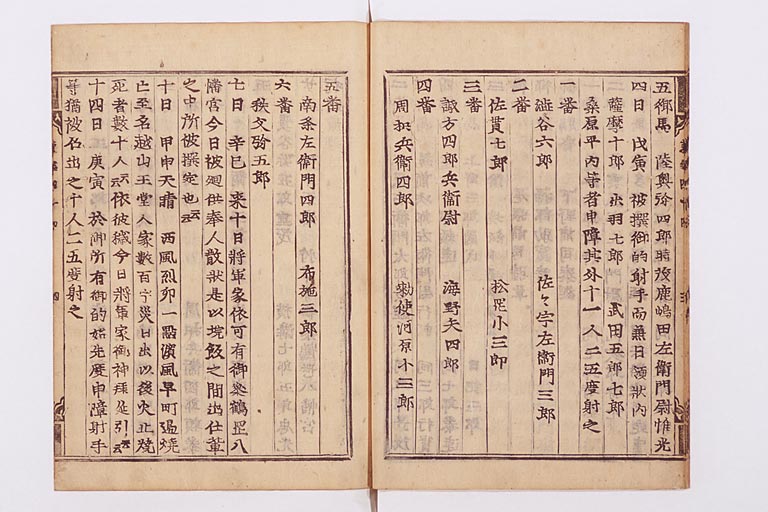 五御馬 陸奥弥四郎時茂 鹿嶋田左衛門尉惟光
四日 戊寅 被撰御的射手而兼日領状内
薩摩十郎 出羽七郎 武田五郎七郎
桑原平内等者申障其外十一人二五度射之
一番
澁谷六郎 佐々宇左衛門三郎
二番
佐貫七郎 松罡小三郎
三番
諏方四郎兵衛尉 海野矢四郎
四番
周枳兵衛四郎 勅使河原小三郎
五番
南条左衛門四郎 布施三郎
六番
秩父弥五郎
七日 辛巳 来十日將軍家依可有御參鶴罡八
幡宮今日被廻供奉人散状是以境飯之間出仕輩
之中所被撰定也云云
十日 甲申天晴 西風烈卯一點濱風早町邉燒
亡至名越山王堂人家數百宇災日出以後火止燒
死者數十人云云依彼穢今日將軍家御神拜延引云云
十四日 庚寅 於御所有御的始先度申障射手
等猶被仰出之十人二五度射之